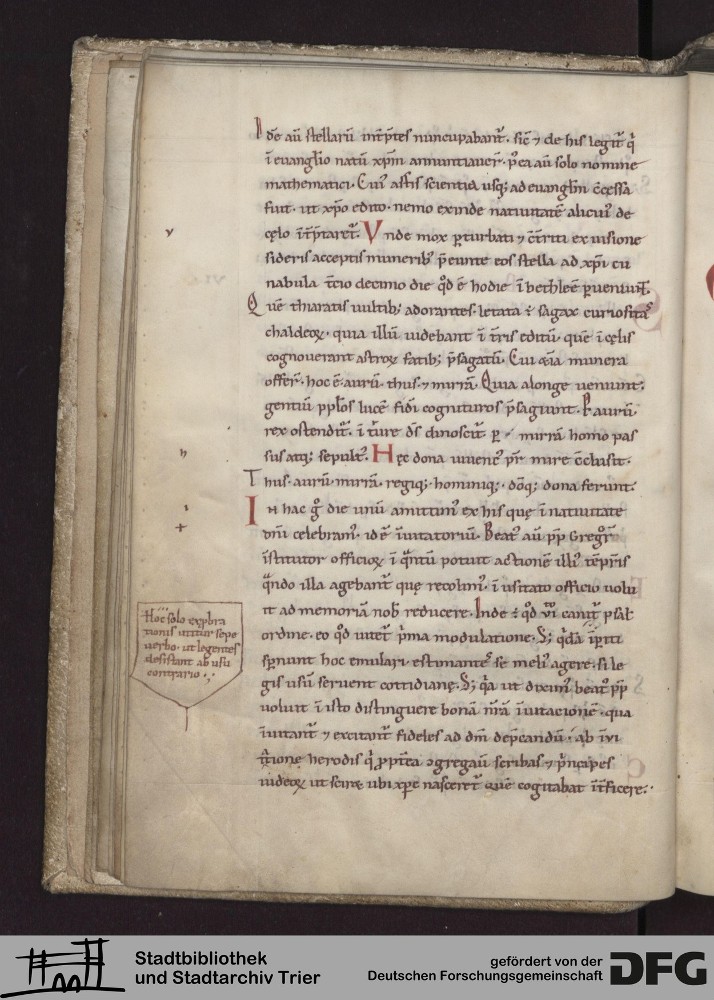 Idē aū stellarū int̄p̄tes nuncupabant᷒. sic̄ ⁊ de his legit᷒ q̇
ī evanglio natū xp̄m annuntiaver̄. p᷒ea aū solo nomine
mathematici. Cui᷒ artis scientia usq; ad evangliū c̄cessa
fuit. ut xp̄o edito. nemo exinde nativitatē alicui᷒ de
cęlo īt̄p̄taret᷒. Vnde mox p̱turbati ⁊ c̄triti ex visione
y
sideris acceptis munerib᷒ p̄eunte eos stella ad xp̄i cu
nabula t̄cio decimo die qđ ē hodie ī bethleē p̱venuīt.
Quē thiaratis vultib; adorantes. letata ÷ sagax curiosita᷒
chaldeoꝝ. quia illū videbant ī t̄ris editū. quē ī cęlis
cognoverant astroꝝ fatib; p̄sagatū. Cui munera
offer̄. hoc ē. aurū. thus. ⁊ mirrā. Quia alonge veniunt.
gentiū pp̄los lucē fidei cognituros p̄sagiunt. aurū
rex ostendit᷒. ī t̄ure d̄s dinoscit᷒ mirrā homo pas
sus atq; sepult᷒. Hęc dona iuvenc᷒ p̄r mire c̄clusit.
h
Thus. aurū. mirrā. regiq;. hominiq;. dōq; dona ferunt.
In hac ḡ die unū amittim᷒ ex his quę ī nativitate
dn̄i celebram᷒. id ē īvitatoriū. Beat᷒ aū pp̄ Gregor᷒
+
īstitutor officioꝝ ī qͣntū potuit actionē illi᷒ tēpr̄is
qͣndo illa agebant᷒ quę recolim᷒. ī usitato officio volu
it ad memoriā nob̄ reducere. Inde ÷ qđ canit᷒ psal̄
ordine. eo qđ vitet᷒ p̓ma modulatione. S; qͥdā īp̱iti
sp̱nunt hoc emulari. estimante᷒ se meli᷒ agere. si le
gis usū servent cottidianę. S; qͥa ut dixim᷒ beat᷒ pp̄
voluit ī isto distinguere bonā nr̄ā īvitacionē. qua
īvitant᷒ ⁊ excitant᷒ fideles ad dn̄m dep̄candū. ab īvi
tͣtionę herodis q̇ ꝓpt̄ea ↄgregavit scribas ⁊ p̓ncipes
iudeoꝝ ut sciret ubi xp̄c nasceret᷒ quē cogitabat īt̄ficere.
Hoc solo exp̱bra
tionis utitur sepe
verbo. ut legentes
desistant ab usu
contrario.
Stadtbibliothek
und Stadtarchiv Trier
gefördert von der
Deutschen Forschungsgemeinschaft
DFG